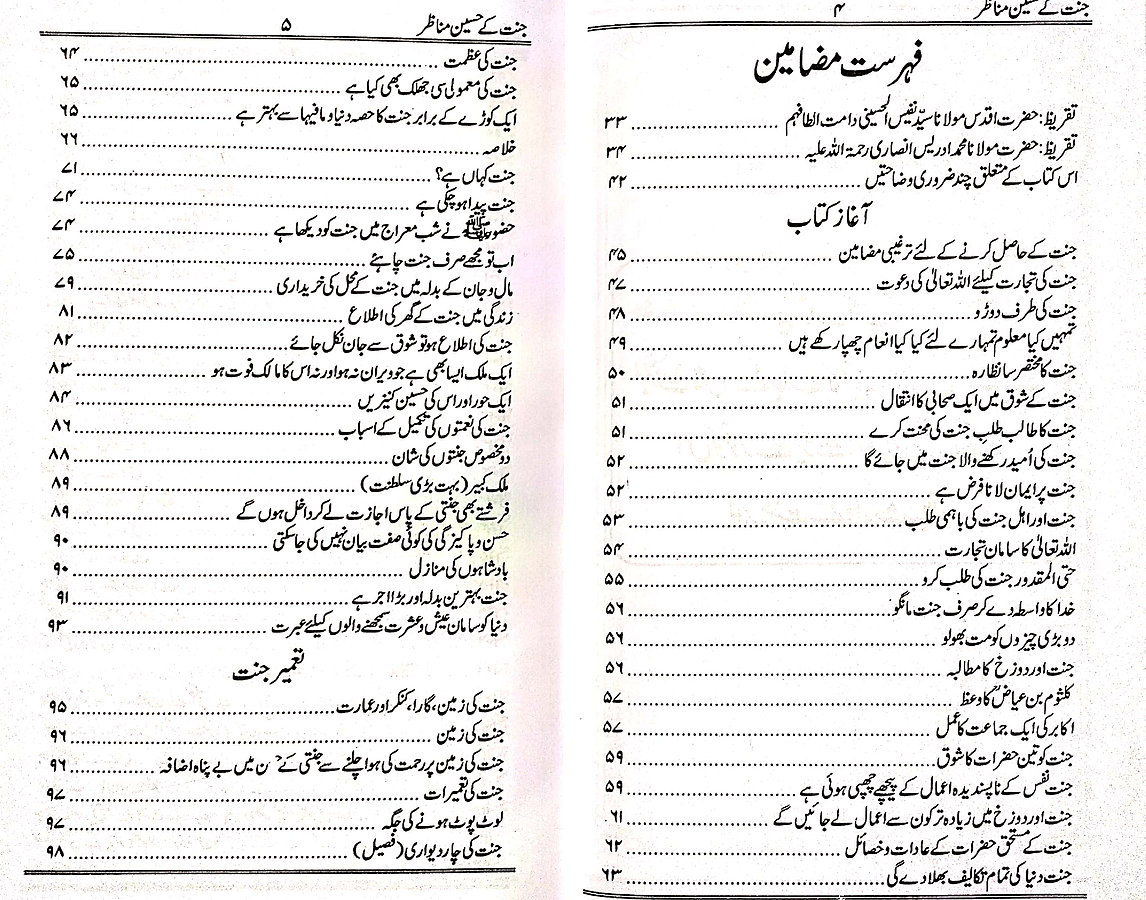 جنت کے حسین مناظر ۴
فہرست مضامین
تقریظ: حضرت اقدس مولانا سیّد نفیس الحسینی دامت الطافہم ۳۳
تقریظ: حضرت مولانا محمد ادریس انصاری رحمۃ اللہ علیہ ۳۴
اس کتاب کے متعلق چند ضروری وضاحتیں ۴۲
آغاز کتاب
جنت کے حاصل کرنے کے لئے ترغیبی مضامین ۴۵
جنت کی تجارت کیلئے اللہ تعالیٰ کی دعوت ۴۷
جنت کی طرف دوڑو ۴۸
تمہیں کیا معلوم تمہارے لئے کیا کیا انعام چھپا رکھے ہیں ۴۹
جنت کا مختصر سا نظارہ ۵۰
جنت کے شوق میں ایک صحابی کا انتقال ۵۱
جنت کا طالب طلب جنت کی محنت کرے ۵۱
جنت کی اُمید رکھنے والا جنت میں جائے گا ۵۲
جنت پر ایمان لانا فرض ہے ۵۲
جنت اور اہل جنت کی باہمی طلب ۵۳
اللہ تعالیٰ کا سامان تجارت ۵۴
حتی المقدور جنت کی طلب کرو ۵۵
خدا کا واسطہ دے کر صرف جنت مانگو ۵۶
دو بڑی چیزوں کو مت بھولو ۵۶
جنت اور دوزخ کا مطالبہ ۵۶
کلثوم بن عیاضؒ کا وعظ ۵۷
اکابر کی ایک جماعت کا عمل ۵۷
جنت کو تین حضرات کا شوق ۵۹
جنت نفس کے ناپسندیدہ اعمال کے پیچھے چھپی ہوئی ہے ۵۹
جنت اور دوزخ میں زیادہ تر کون سے اعمال لے جائیں گے ۶۱
جنت کے مستحق حضرات کے عادات و خصائل ۶۲
جنت دنیا کی تمام تکالیف بھلا دے گی ۶۳
جنت کے حسین مناظر ۵
جنت کی عظمت ۶۴
جنت کی معمولی سی جھلک بھی کیا ہے ۶۵
ایک کوڑے کے برابر جنت کا حصہ دنیا و مافیہا سے بہتر ہے ۶۵
خلاصہ ۶۶
جنت کہاں ہے؟ ۷۱
جنت پیدا ہو چکی ہے ۷۴
حضور ﷺ نے شب معراج میں جنت کو دیکھا ہے ۷۴
اب تو مجھے صرف جنت چاہئے ۷۵
مال و جان کے بدلہ میں جنت کے محل کی خریداری ۷۹
زندگی میں جنت کے گھر کی اطلاع ۸۱
جنت کی اطلاع ہو تو شوق سے جان نکل جائے ۸۲
ایک ملک ایسا بھی ہے جو ویران نہ ہو اور نہ اس کا مالک فوت ہو ۸۳
ایک حور اور اس کی حسین کنیزیں ۸۴
جنت کی نعمتوں کی تکمیل کے اسباب ۸۶
دو مخصوص جنتوں کی شان ۸۸
ملک کبیر (بہت بڑی سلطنت) ۸۹
فرشتے بھی جنتی کے پاس اجازت لے کر داخل ہوں گے ۸۹
حسن و پاکیزگی کی کوئی صفت بیان نہیں کی جاسکتی ۹۰
بادشاہوں کی منازل ۹۰
جنت بہترین بدلہ اور بڑا اجر ہے ۹۱
دنیا کو سامان عیش و عشرت سمجھنے والوں کیلئے عبرت ۹۳
تعمیر جنت
جنت کی زمین، گارا، کنکر اور عمارت ۹۵
جنت کی زمین ۹۶
جنت کی زمین پر رحمت کی ہوا چلنے سے جنتی کے حسن میں بے پناہ اضافہ ۹۶
جنت کی تعمیرات ۹۷
لوٹ پوٹ ہونے کی جگہ ۹۷
جنت کی چار دیواری (فصیل) ۹۸